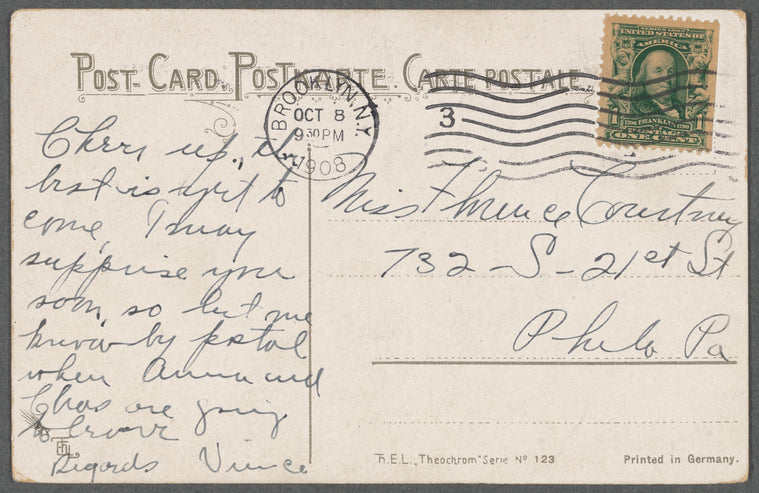 POST CARD. POSTKARTE. CARTE POSTALE
BROOKLYN, N.Y.
OCT 8
9 30 PM
1908
3
SERIES 1902
UNITED STATES OF
AMERICA
1 1
1706 FRANKLIN 1790
POSTAGE
ONE CENT
Cheer up, the
best is yet to
come, I may
surprise you
soon, so let me
know by postal
when Anna and
Chas are going
to leave
Regards Vince
Miss Florence Courtney
732 - S - 21st St
Phila Pa
Th.E.L. „Theochrom" Serie No 123
Printed in Germany.